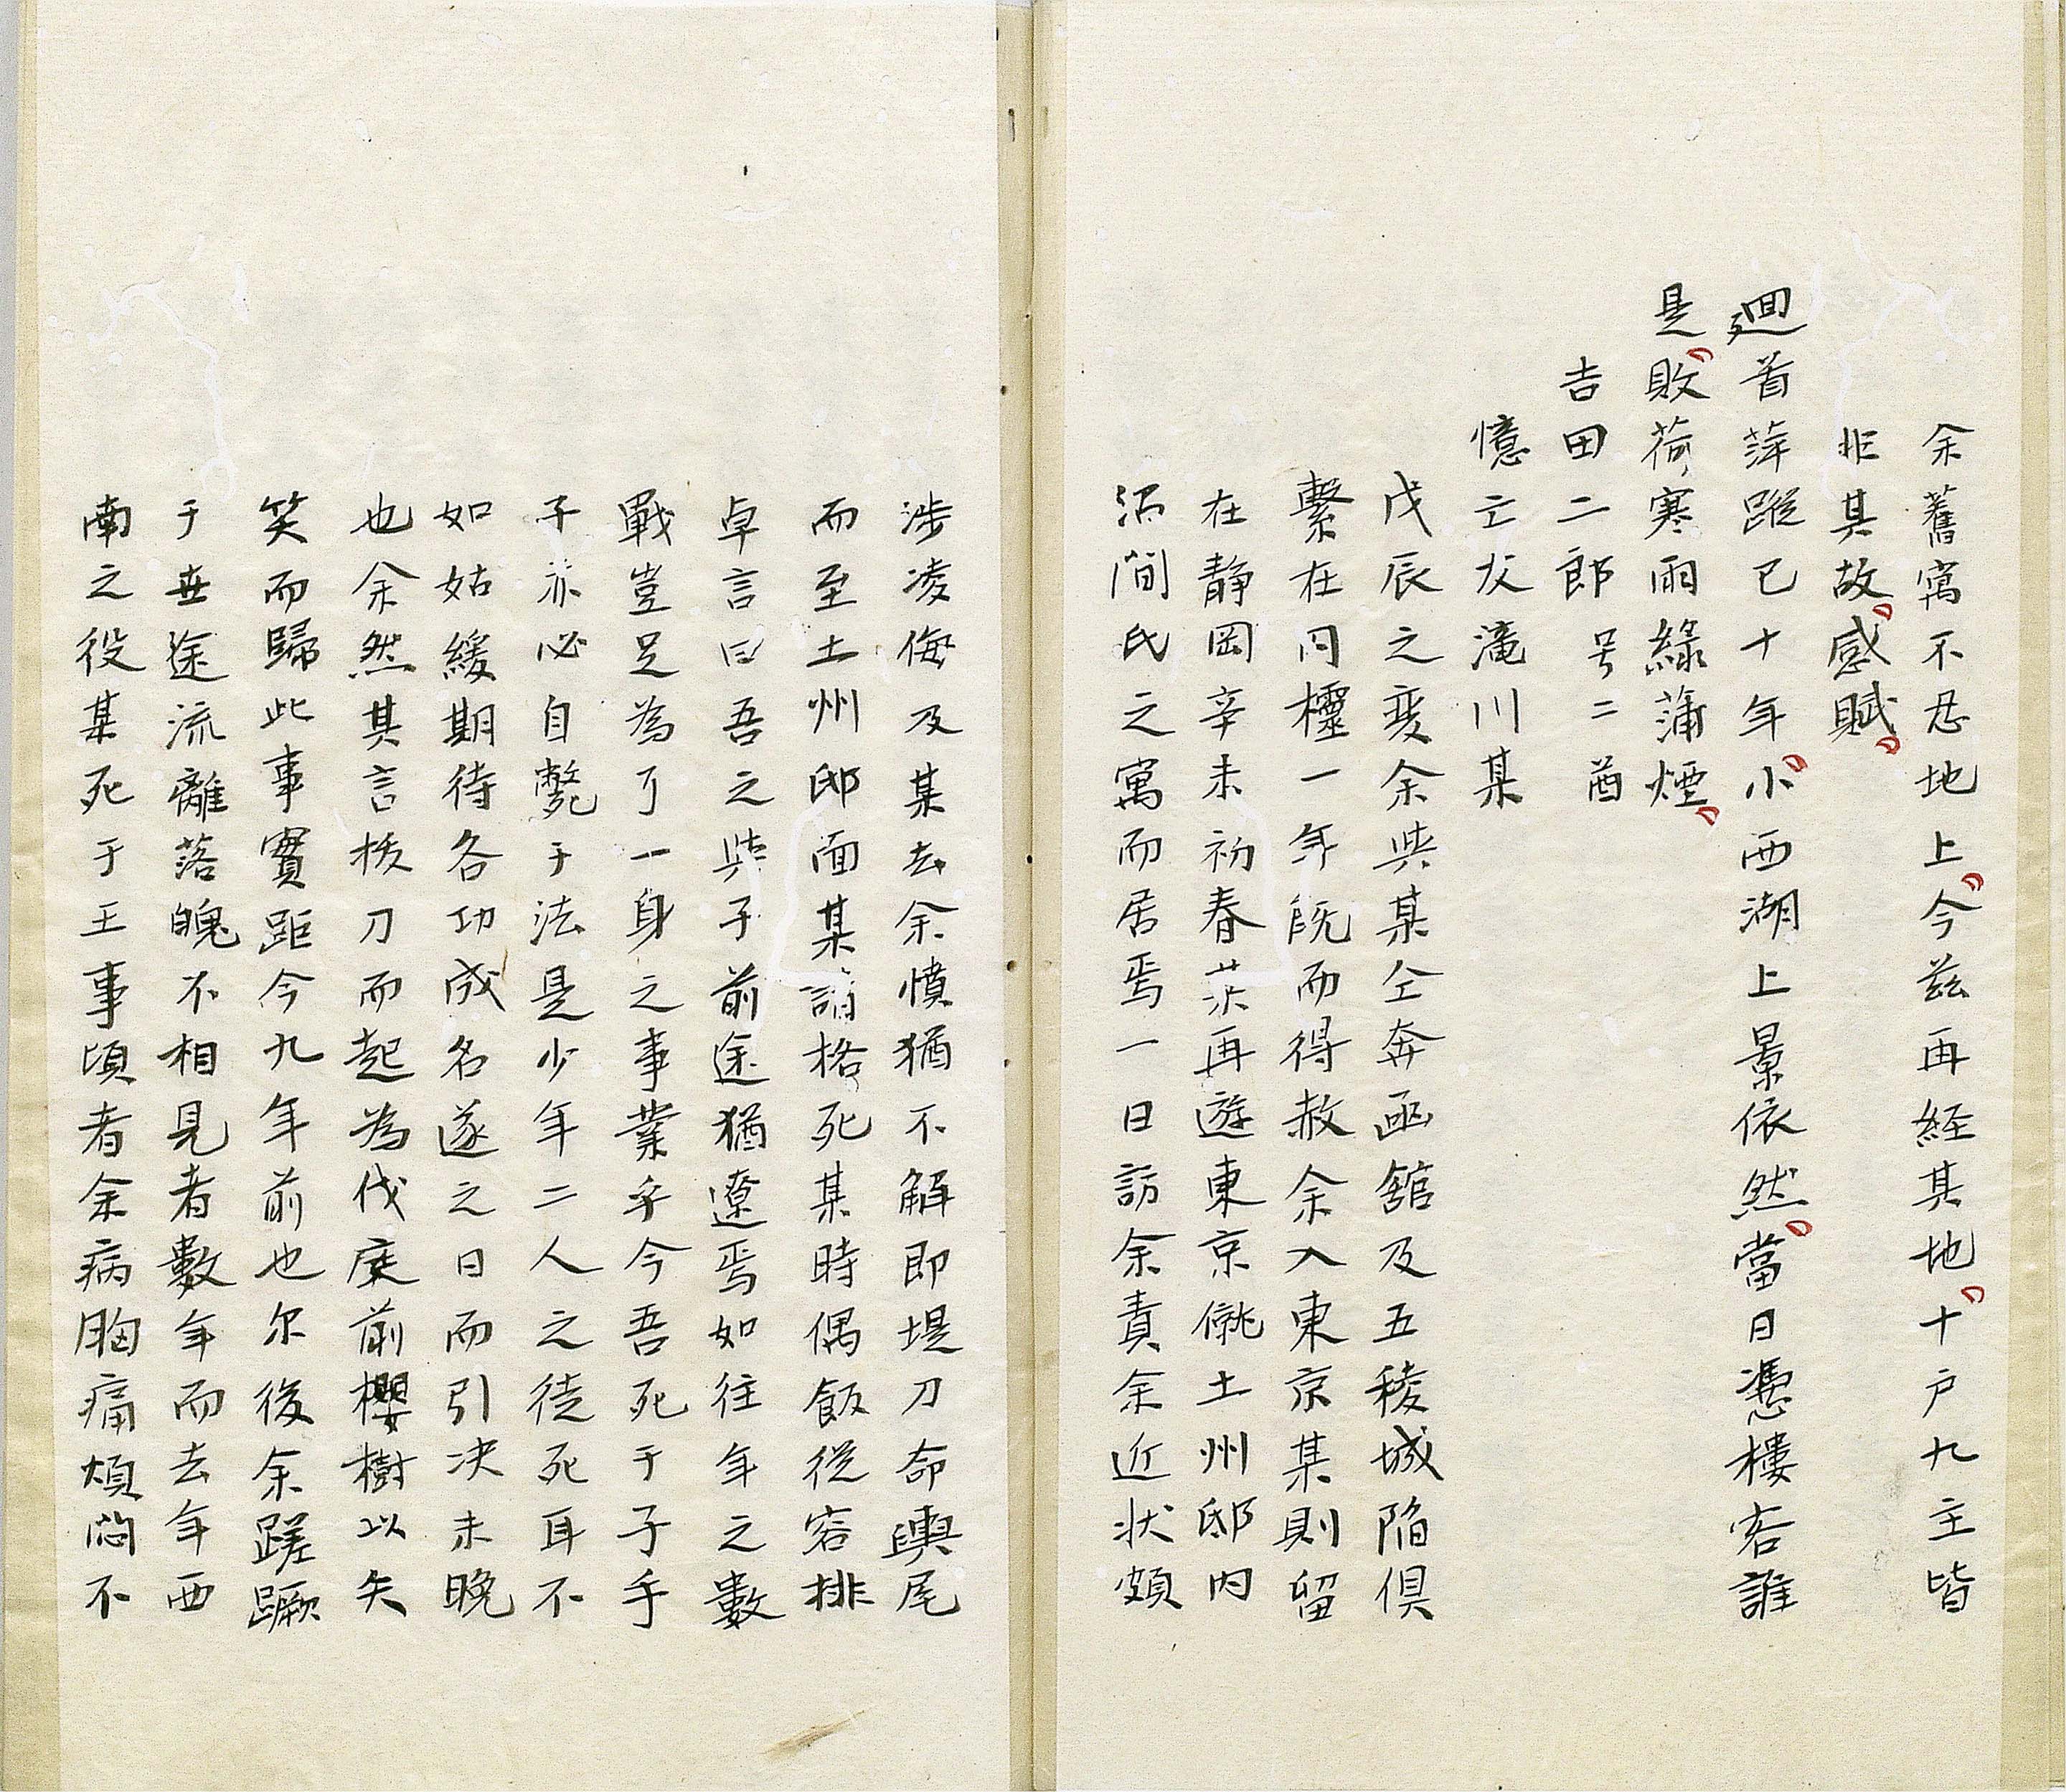 余舊寓不忍地上今茲再経其地十戶九主皆
非其故感賦
廻首萍蹤已十年小西湖上景依然當日憑樓客誰
是敗荷寒雨綠蒲煙
吉田二郎 号二酋
憶亡友滝川某
戊辰之変余與某仝奔函舘及五稜城陥俱
繫在同檻一年既而得赦余入東京某則留
在静岡辛未初春某再遊東京僦土州邸内
沼間氏之寓而居焉一日訪余責余近状頗
涉凌侮及某去余憤猶不解即提刀命輿尾
而至土州邸面某請格死某時偶飯従容排
卓言曰吾之與子前途猶遼焉如往年之數
戰豈足為了一身之事業乎今吾死于子手
子亦必自斃于法是少年二人之徒死耳不
如姑緩期待各功成名遂之日而引决未晚
也余然其言抜刀而起為伐庭前櫻樹以矢
笑而歸此事實距今九年前也尔後余蹉蹶
于世途流離落魄不相見者數年而去年西
南之役某死于王事頃者余病胸痛煩悶不